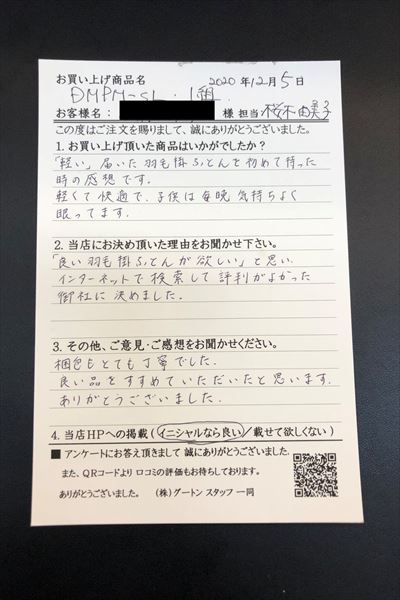 お買い上げ商品名 2020年12月5日
DMPM-SL・1組.
お客様名： 様 担当 桜木由美子
この度はご注文を賜りまして、誠にありがとうございました。
1. お買い上げ頂いた商品はいかがでしたか？
「軽い」届いた羽毛掛ふとんを初めて持った
時の感想です。
軽くて快適で、子供は毎晩気持ちよく
眠ってます.
2. 当店にお決め頂いた理由をお聞かせ下さい。
「良い羽毛掛ふとんが欲しい」と思い.
インターネットで検索して評判がよかった
御社に決めました.
3. その他、ご意見・ご感想をお聞かせください。
梱包もとても丁寧でした.
良い品をすすめていただいたと思います.
ありがとうございました.
4. 当店HPへの掲載(イニシャルなら良い／載せて欲しくない)
■ アンケートにお答え頂きまして 誠にありがとうございました.
また、QRコードより 口コミの評価もお待ちしております。
ありがとうございました。 (株)グートン スタッフ 一同